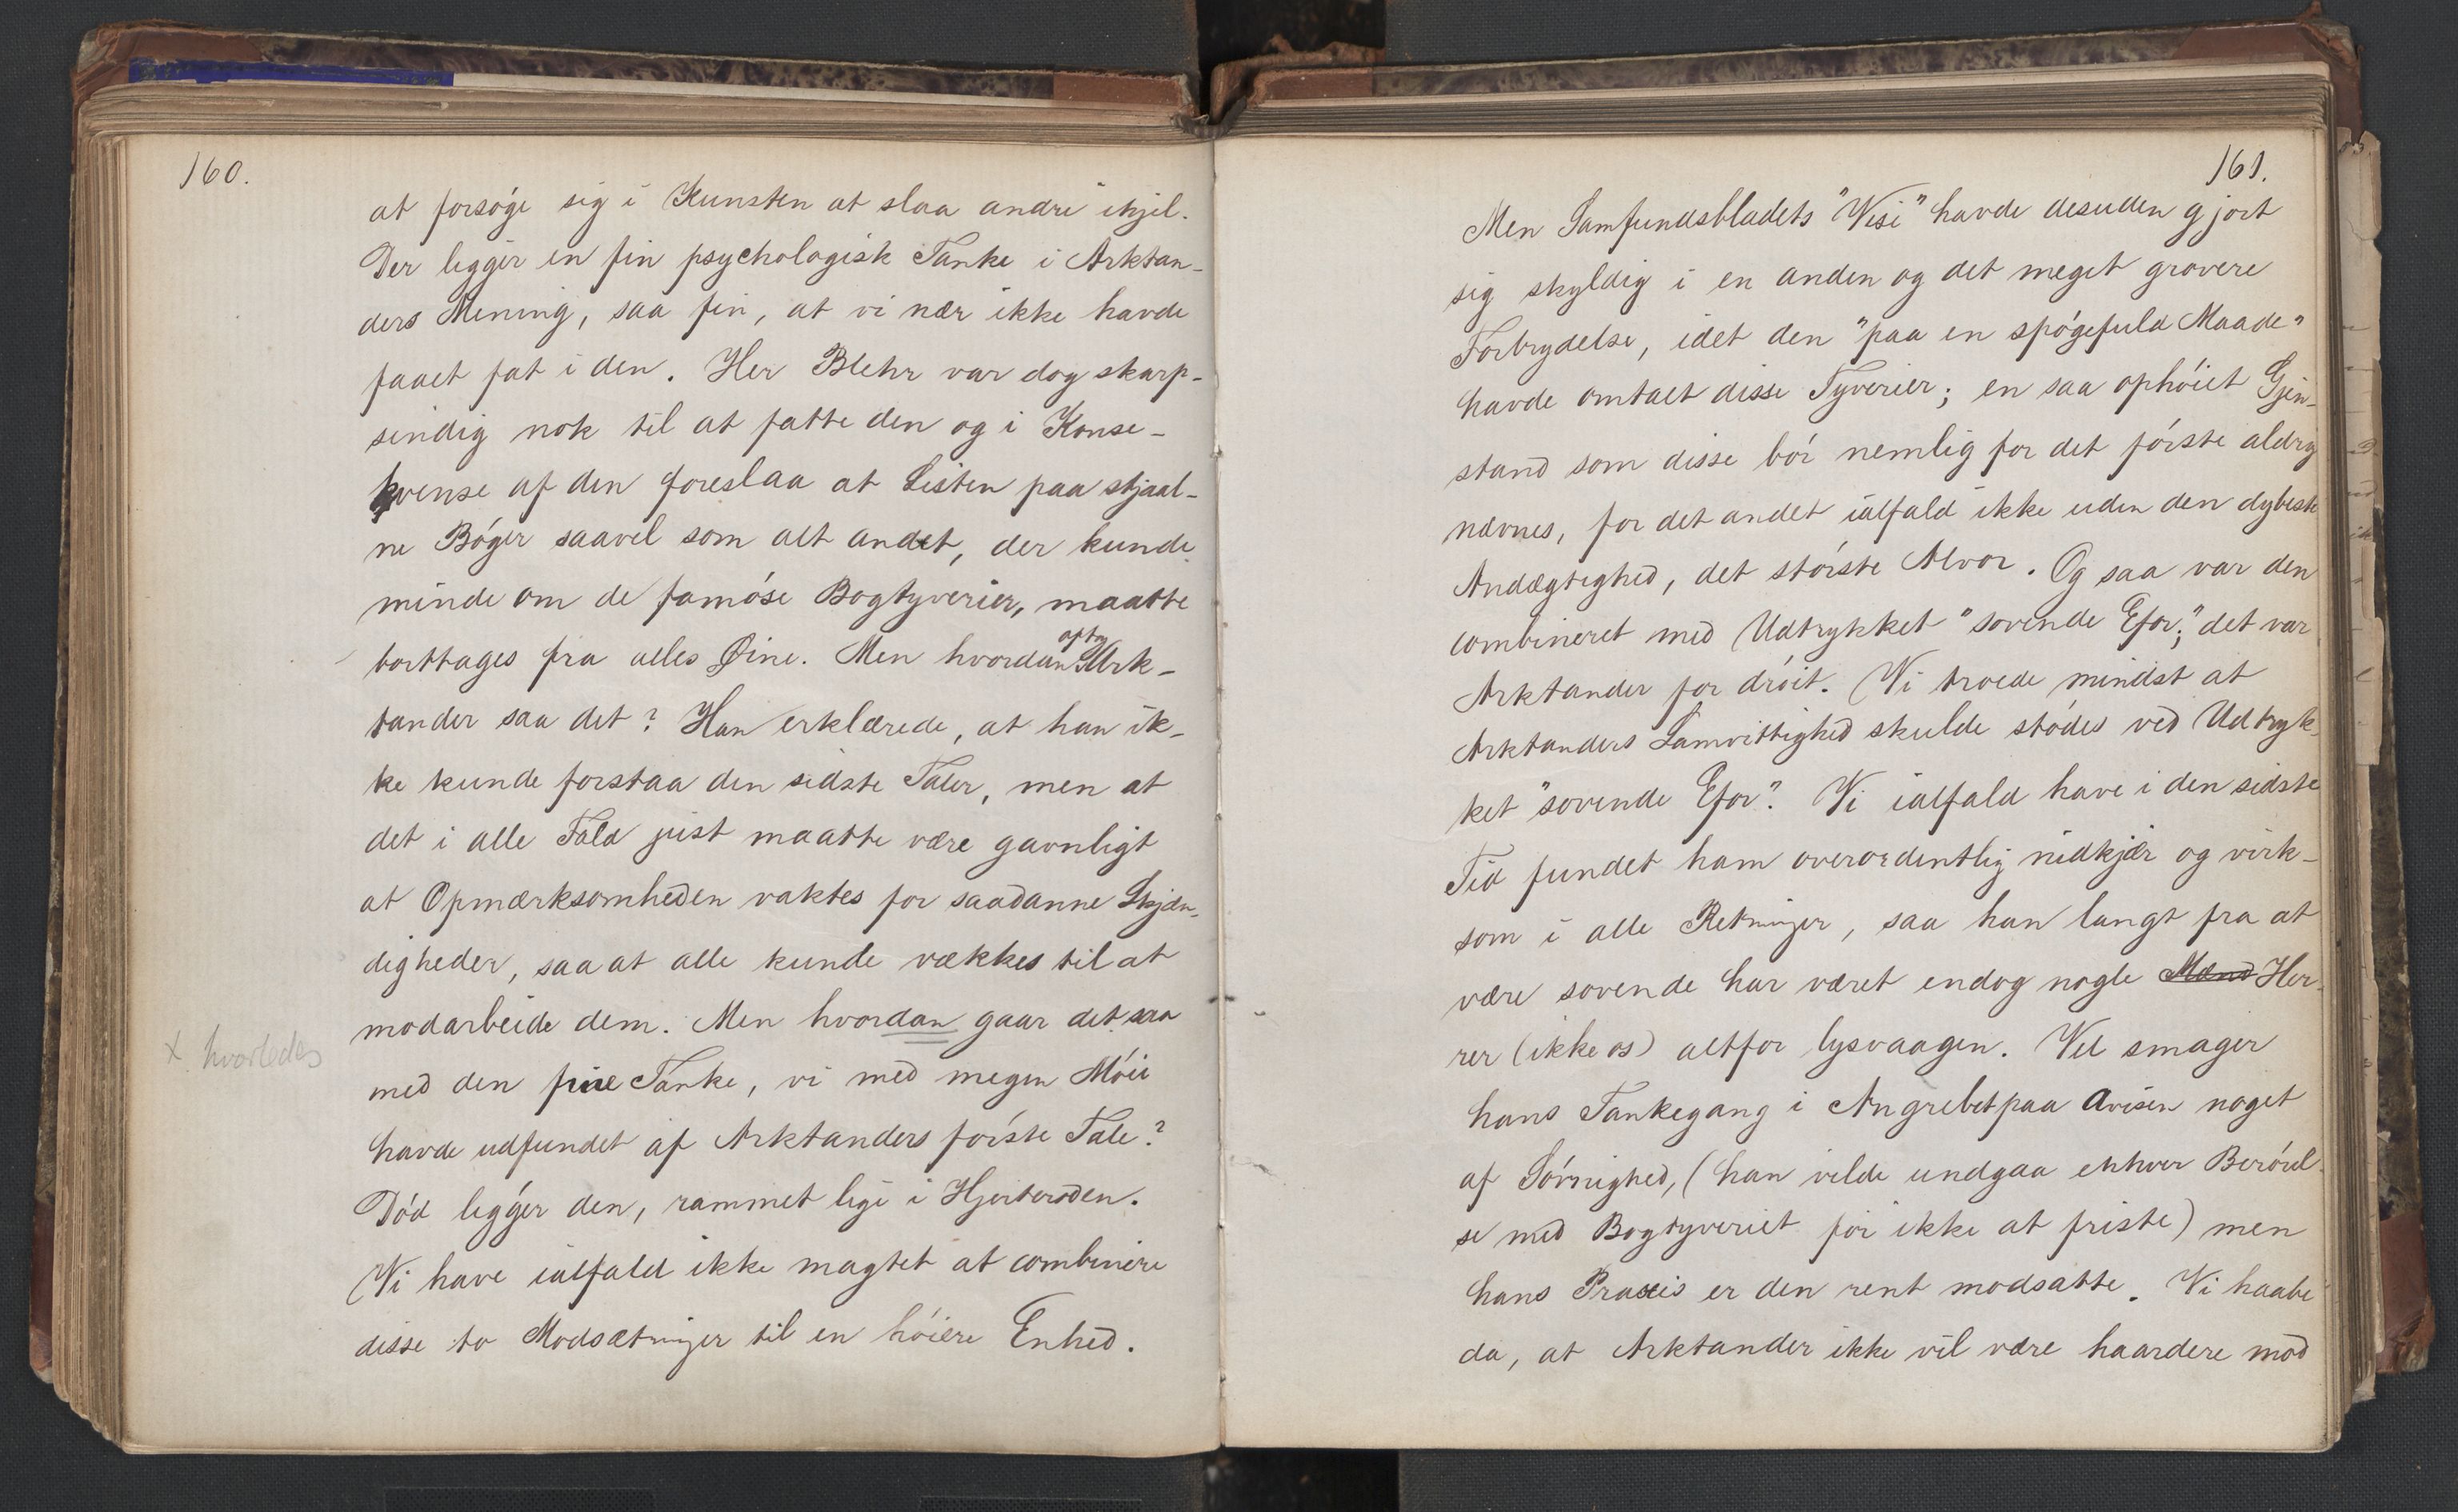 160.
at forsøge sig i Kunsten at slaa andre ihjel.
Der ligger en fin psychologisk Tanke i Arktan-
ders Mening, saa fin, at vi nær ikke havde
faaet fat i den. Her Blehr var dog skarp-
sindig nok til at fatte den og i Konse-
kvense af den foreslaa at Listen paa stjaal-
ne Bøger saavel som alt andet, der kunde
minde om de famøse Bogtyverier, maatte
borttages fra alles Øine. Men hvordan optog Ark-
tander saa det? Han erklærede, at han ik-
ke kunde forstaa den sidste Taler, men at
det i alle Fald just maatte være gavnligt
at Opmærksomheden vaktes for saadanne Skjæn-
digheder, saa at alle kunde vækkes til at
modarbeide dem. Men hvordan gaar det saa
x hvorledes
med den fine Tanke, vi med megen Møie
havde udfundet af Arktanders første Tale?
Død ligger den, rammet lige i Hjerteroden.
Vi have ialfald ikke magtet at combinere
disse to Modsætninger til en høiere Enhed.
161.
Men Samfundsbladets "Vise" havde desuden gjort
sig skyldig i en anden og det meget grovere
Forbrydelse, idet den "paa en spøgefuld Maade"
havde omtalt disse Tyverier; en saa ophøiet Gjen-
stand som disse bør nemlig for det første aldrig
nævnes, for det andet ialfald ikke uden den dybeste
Andægtighed, det største Alvor. Og saa var den
combineret med Udtrykket "sovende Efor;" det var
Arktander for drøit. Vi troede mindst at
Arktanders Samvittighed skulde stødes ved Udtryk-
ket "sovende Efor". Vi ialfald have i den sidste
Tid fundet ham overordentlig nidkjær og virk-
som i alle Retninger, saa han langt fra at
være sovende har været endog nogle Mænd Her-
rer (ikke os) altfor lysvaagen. Vel smager
hans Tankegang i Angrebet paa Avisen noget
af Søvnighed, (han vilde undgaa enhver Berørel-
se med Bogtyveriet for ikke at friste) men
hans Praxis er den rent modsatte. Vi haabe
da, at Arktander ikke vil være haardere mod